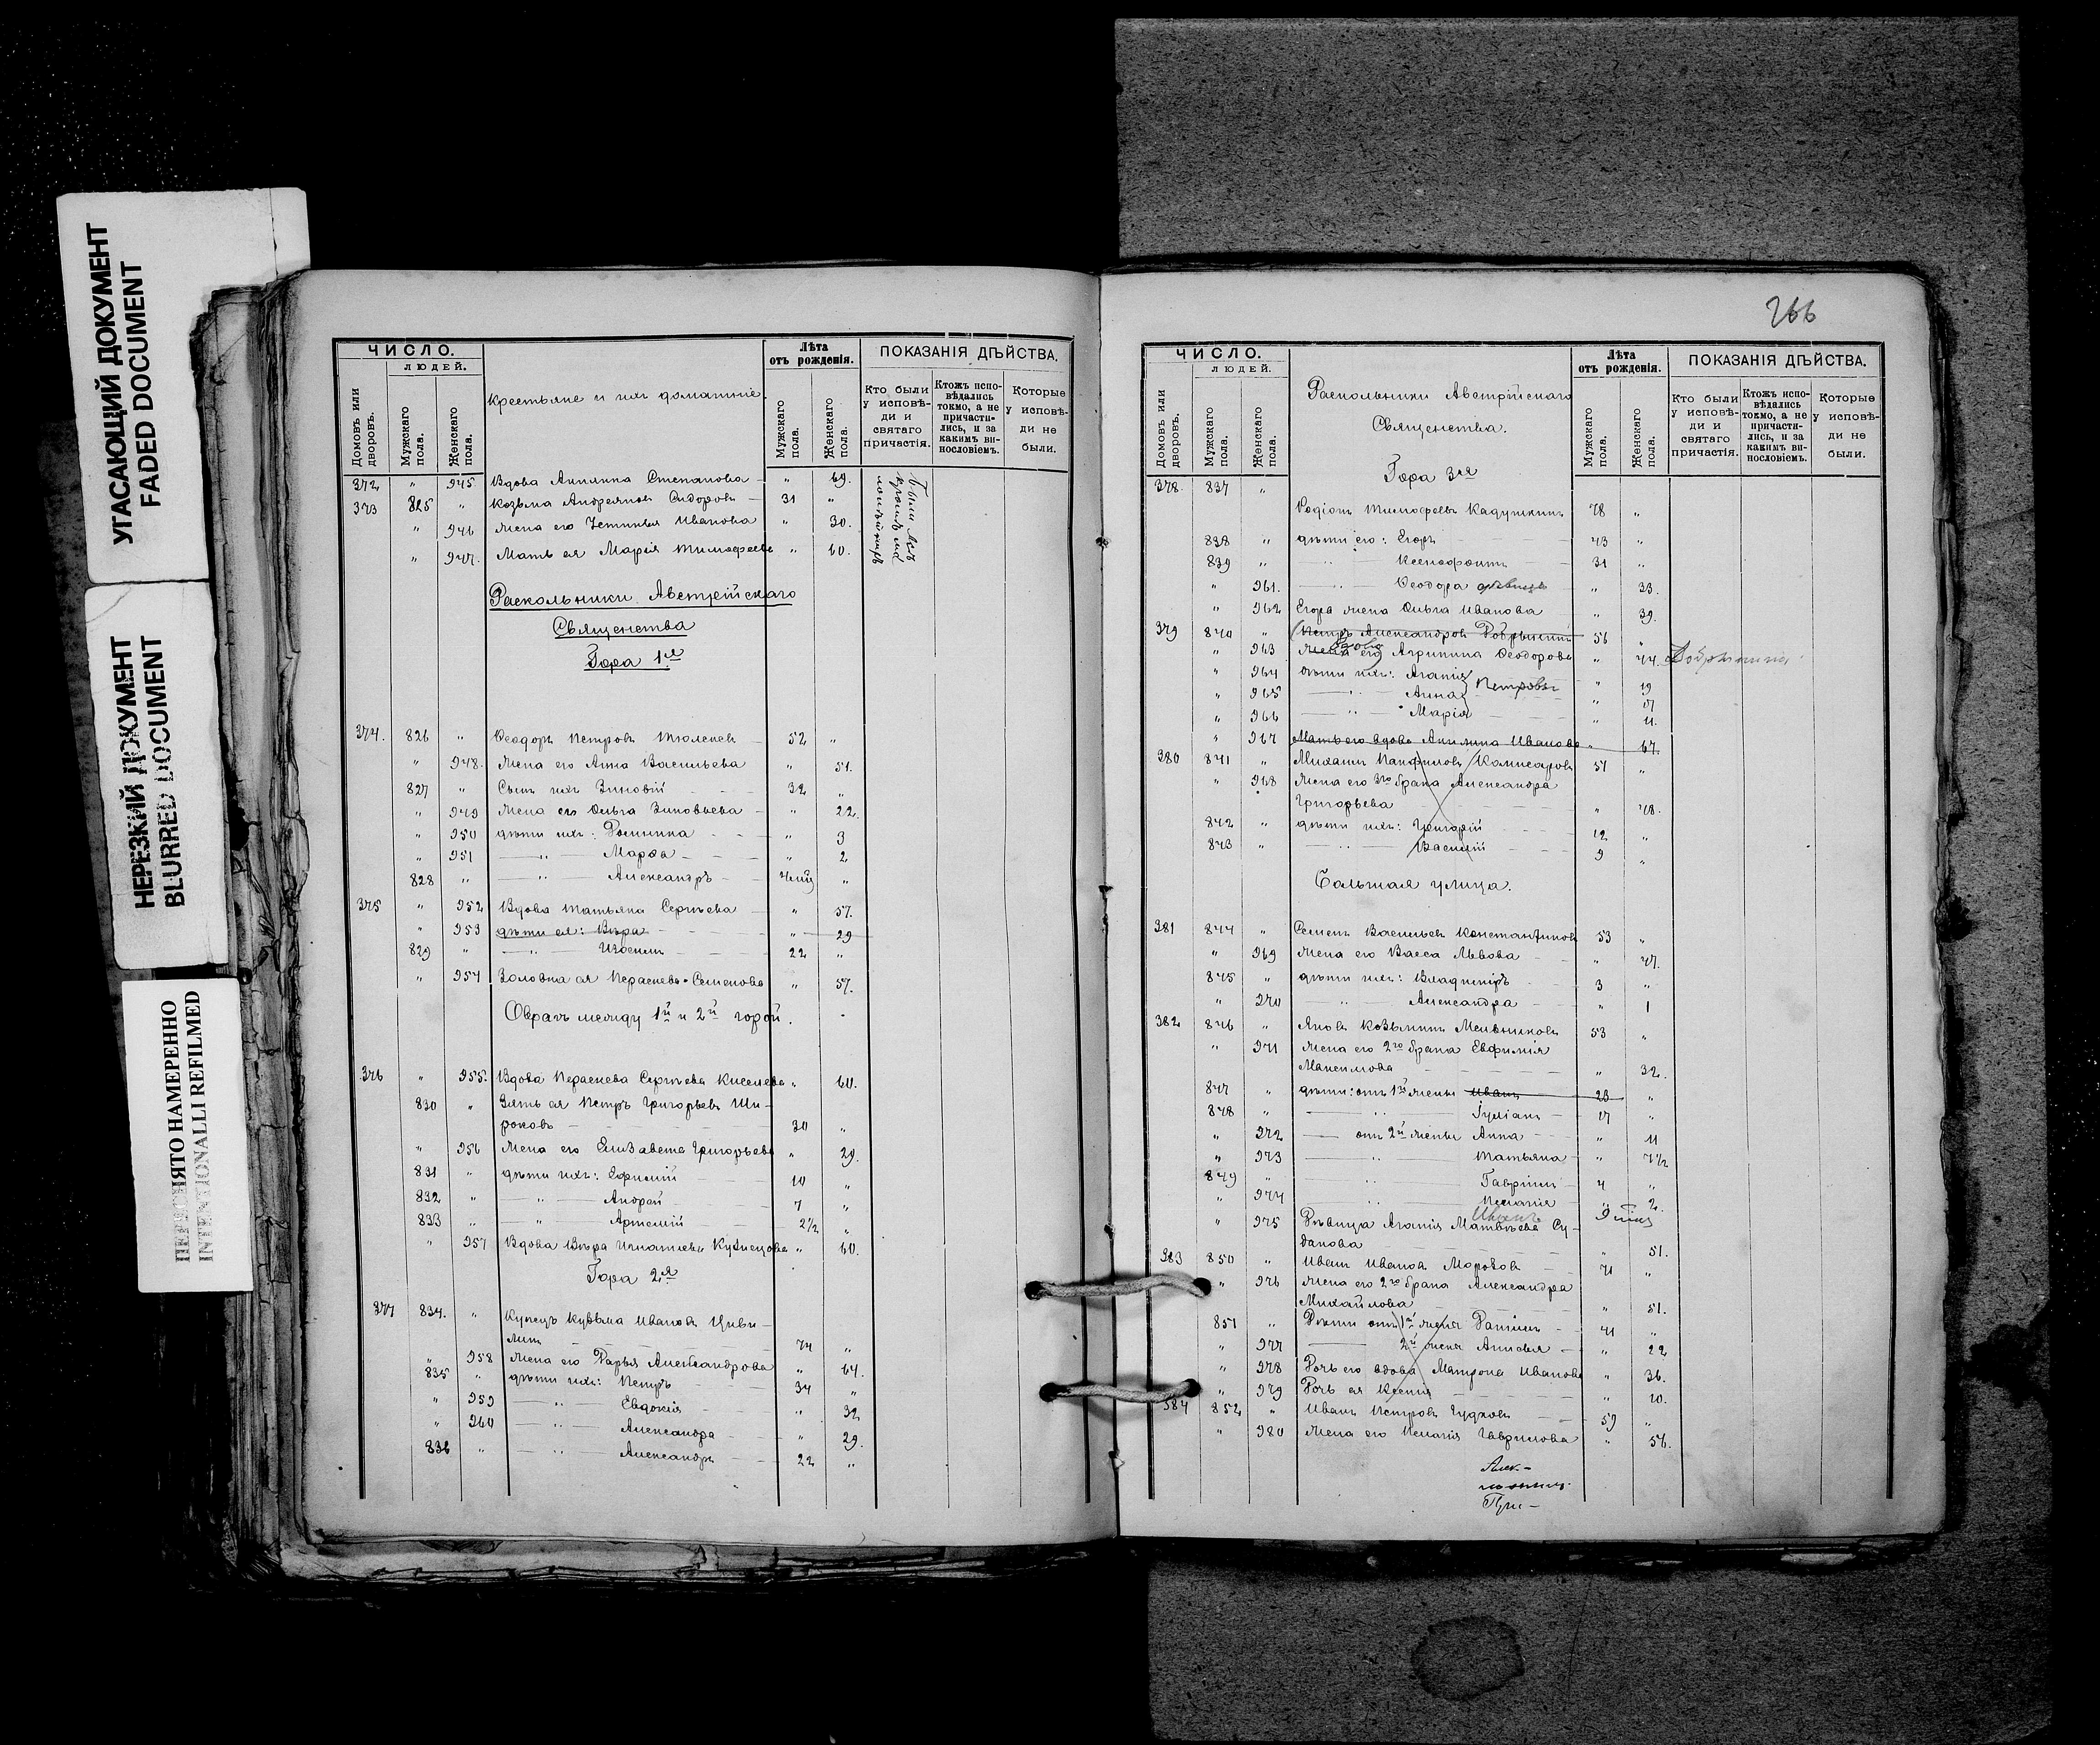 УГАСАЮЩИЙ ДОКУМЕНТ
FADED DOCUMENT
НЕРЕЗКИЙ ДОКУМЕНТ
BLURRED DOCUMENT
ПЕРЕСНЯТО НАМЕРЕННО
INTENTIONALLI REFILMED
ЧИСЛО.
ЛЮДЕЙ.
Домовъ или дворовъ.
Мужскаго пола.
Женскаго пола.
Крестьяне и ихъ домашніе.
Лѣта отъ рожденія.
Мужскаго пола.
Женскаго пола.
ПОКАЗАНІЯ ДѢЙСТВА.
Кто были у исповѣди и святаго причастія.
Ктожъ исповѣдались токмо, а не причастились, и за какимъ винословіемъ.
Которые у исповѣди не были.
372 " 945 Вдова Акилина Степанова " 69.
373 825 " Козьма Андреяновъ Сидоровъ 31 "
" 946 Жена его Устинья Иванова " 30.
" 947. Мать ея Марія Тимофеева " 60.
Раскольники Австрійскаго
Священства
Гора 1я
374. 826 " Ѳеодоръ Петровъ Тюленев 52 "
" 948. Жена его Анна Васильева " 51.
827 " Сынъ ихъ Зиновій 32 "
" 949 Жена его Ольга Зиновьева " 22.
" 950 дѣти ихъ: Домника " 3
" 951 " Марѳа " 2
828 " " Александръ "
375 " 952 Вдова Татьяна Сергѣева " 57.
" 953 дѣти ея: Вѣра " 29
829 " " 22 "
" 954 Золовка ея Параскева Семенова " 57.
Оврагъ между 1й и 2й горой.
376 " 955. Вдова Параскева Сергѣева Киселева " 60.
830 " Зять ея Петръ Григорьевъ Ши-
роковъ 30 "
" 956 Жена его Елизавета Григорьева " 29.
831 " дѣти ихъ: Ефимій 10 "
832 " " Андрей 7 "
833 " " Артемій 2½ "
" 957 Вдова Вѣра Игнатьева Кузнецова " 60.
Гора 2я
377 834. " Купецъ Кузьма Ивановъ Циви-
линъ 74 "
" 958 Жена его Дарья Александрова " 64.
835 " дѣти ихъ: Петръ 34 "
" 959 " Евдокія " 32
" 960 " Александра " 29.
836 " " Александръ 22 "
266
ЧИСЛО.
ЛЮДЕЙ.
Домовъ или дворовъ.
Мужскаго пола.
Женскаго пола.
Раскольники Австрійскаго
Священства.
Лѣта отъ рожденія.
Мужскаго пола.
Женскаго пола.
ПОКАЗАНІЯ ДѢЙСТВА.
Кто были у исповѣди и святаго причастія.
Ктожъ исповѣдались токмо, а не причастились, и за какимъ винословіемъ.
Которые у исповѣди не были.
Гора 3я
378. 837 "
Родіонъ Тимофеевъ Кадушкинъ 78 "
838 " дѣти его: Егоръ 43 "
839 " " Ксенофонтъ 31 "
" 961. " Ѳеодора дѣвица " 33.
" 962 Егора жена Ольга Иванова " 39.
379 840 " Петръ Александровъ Добрынинъ 56 "
вдова
" 963 Жена его Агрипина Ѳеодорова " 44. Добрынина
" 964 дѣти ихъ: Агапія " 19
Петровы
" 965 " Анна " 17
" 966 " Марія " 11.
" 967 Мать его вдова Акилина Иванова " 67.
380 841 " Михаилъ Панфиловъ Комисаровъ 51 "
" 968 Жена его 3го брака Александра
Григорьева " 48.
842 " дѣти ихъ: Григорій 12 "
843 " " Василій 9 "
Большая улица.
381 844 " Семенъ Васильевъ Константиновъ 53 "
" 969 Жена его Васса Львова " 47.
845 " дѣти ихъ: Владиміръ 3 "
" 970 " Александра " 1
382 846 " Яковъ Козьминъ Мельниковъ 53 "
" 971 Жена его 2го брака Евфимія
Максимова " 32.
847 " дѣти: отъ 1й жены Иванъ 23 "
848 " " Іуліанъ 17 "
" 972 отъ 2й жены Анна " 11
" 973 " Татьяна " 7½
849 " " Гавріилъ 4 "
" 974 " Пелагія " 2.
" 975 Дѣвица Агапія Матвѣева Су-
данова " 51.
383 850 " Иванъ Ивановъ Морозовъ 71 "
" 976 Жена его 2го брака Александра
Михайлова " 51.
851 " Дѣти отъ 1й жены Даніилъ 41 "
" 977 2й жены Анисья " 22
" 978 Дочь его вдова Матрона Иванова " 36.
" 979 Дочь ея Ксенія " 10.
384 852 " Иванъ Петровъ Гудковъ 59 "
" 980 Жена его Пелагія Гаврилова " 56.